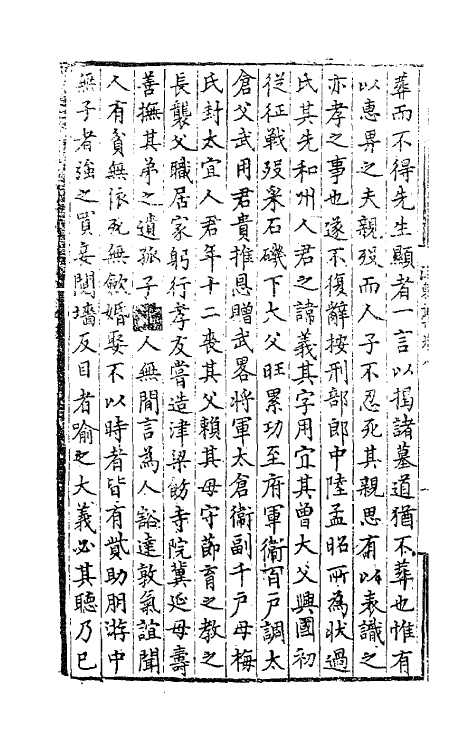 葬而不得先生顯者一言以揭諸墓道猶不葬也惟有
以惠畀之夫親歿而人子不忍死其親思有以表識之
亦孝之事也遂不復辭按刑部郎中陸孟昭所為狀過
氏其先和州人君之諱義其字用宜其曾大父興國初
從征戰歿采石磯下大父旺累功至府軍衞百戶調太
倉父武用君貴推恩贈武畧將軍太倉衞副千戶母梅
氏封太宜人君年十二喪其父賴其母守節育之教之
長襲父職居家躬行孝友嘗造津梁飭寺院冀延母壽
善撫其弟之遺孤子人無間言為人豁達敦氣誼聞
人有貧無依死無斂婚娶不以時者皆有貲助朋游中
無子者強之買妾鬩墻反目者喻之大義必其聽乃已